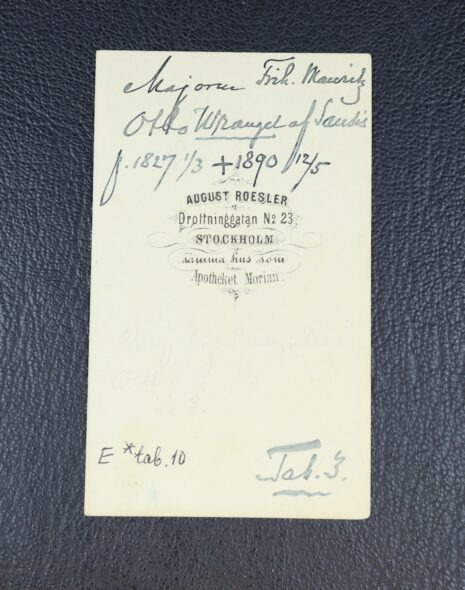 Majoren Frih. Mauritz
Otto Wrangel af Sausis
f. 1827 1/3 + 1890 12/5
AUGUST ROESLER
Drottninggatan No 23
STOCKHOLM
samma hus som
Apotheket Morian.
E * tab. 10
Tab. 3.